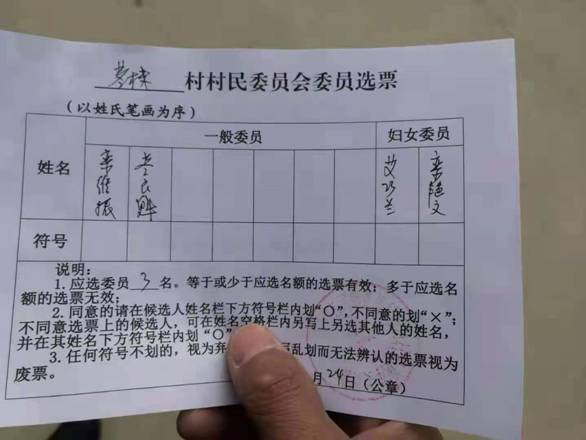 村村民委员会委员选票
（以姓氏笔画为序）
姓名 一般委员 妇女委员
栾维振 艾巧兰 栾艳文
符号
说明：
1. 应选委员 3 名。等于或少于应选名额的选票有效；多于应选名
额的选票无效；
2. 同意的请在候选人姓名栏下方符号栏内划“〇”，不同意的划“×”；
不同意选票上的候选人，可在姓名空格栏内另写上另选其他人的姓名，
并在其姓名下方符号栏内划“〇”
3. 任何符号不划的，视为弃 写乱划而无法辨认的选票视为
废票。
月24日（公章）